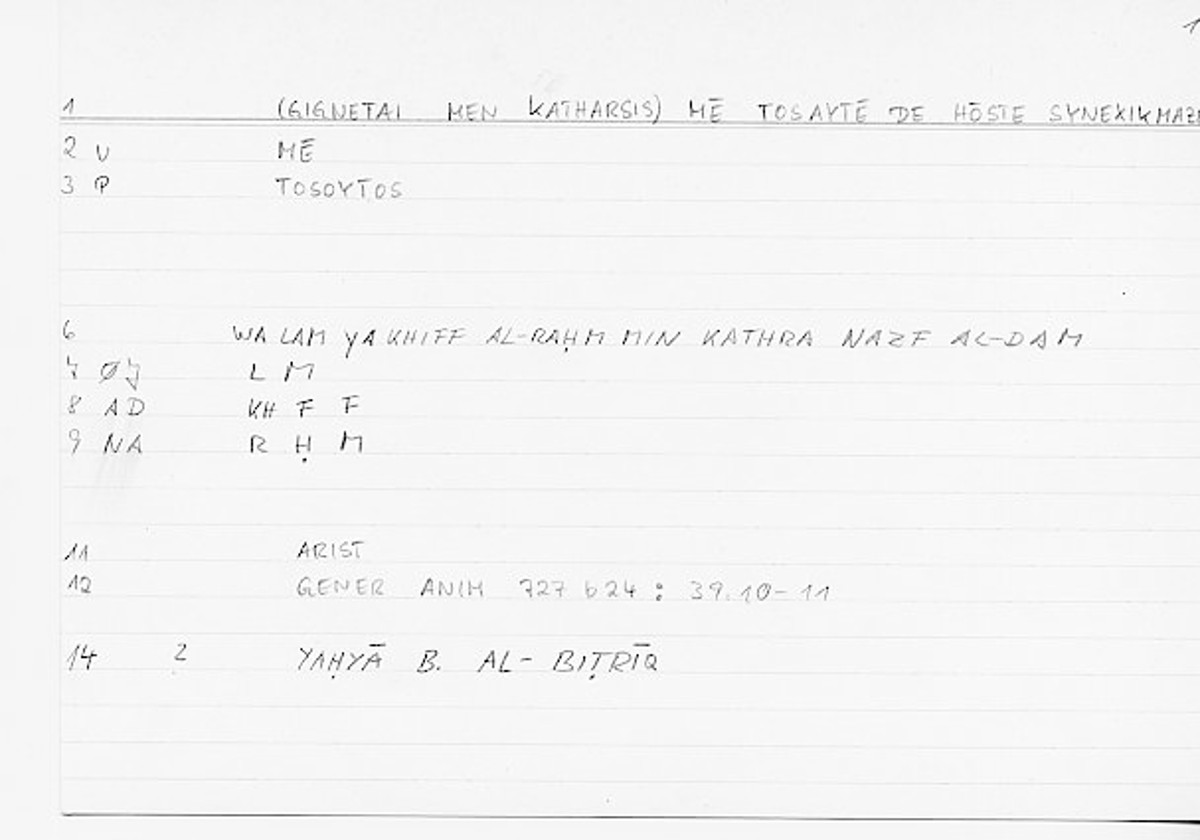 1
1 (GIGNETAI MEN KATHARSIS) MĒ TOSAYTĒ DE HŌSTE SYNEXIKMAZE
2 U MĒ
3 P TOSOYTOS
6 WA LAM YAKHIFF AL-RAḤM MIN KATHRA NAZF AL-DAM
7 L M
8 AD KH F F
9 NA R Ḥ M
11 ARIST
12 GENER ANIM 727 b 24 : 39.10-11
14 2 YAḤYĀ B. AL-BIṬRĪQ